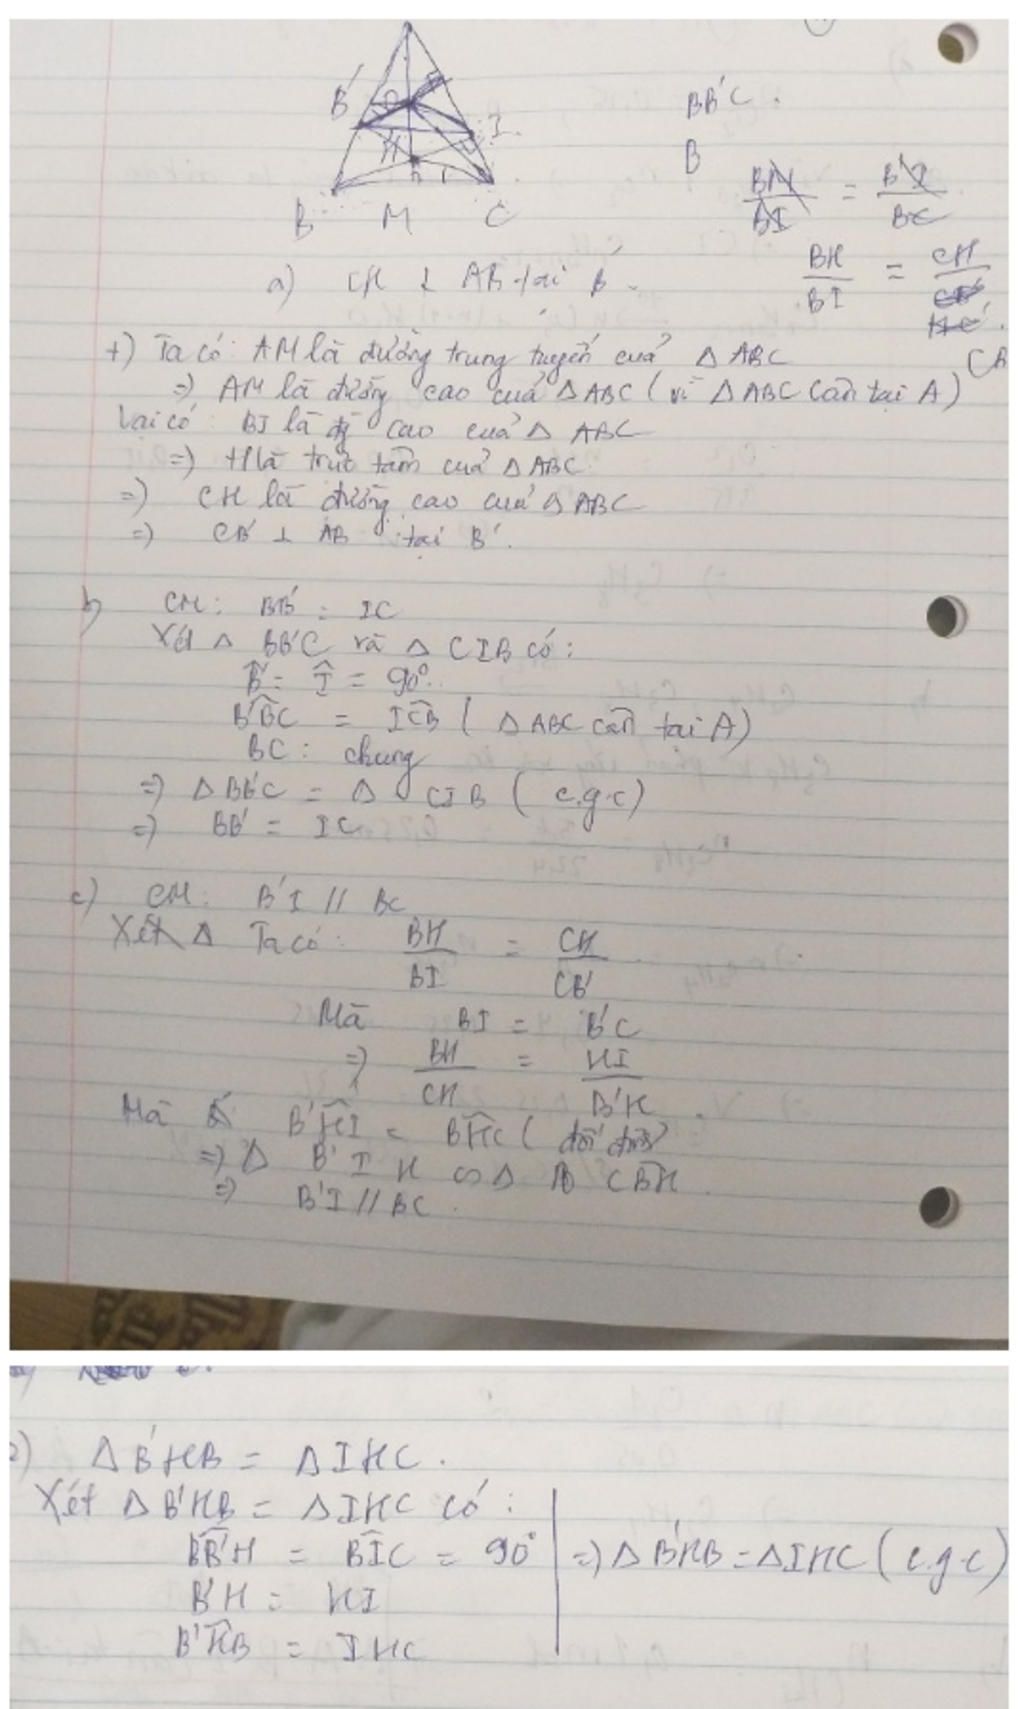 B' I
H
B M C
BB'C.
B
BH/BI = B'I/BC
BH/BI = CH
CB
a) CH ⊥ AB tại B'
+) Ta có: AM là đường trung tuyến cuả △ ABC
=> AM là đường cao cuả △ ABC ( vì △ ABC cân tại A)
Lại có: BI là đg cao cuả △ ABC
=> H là trực tâm cuả △ ABC
=> CH là đường cao cuả △ ABC
=> CB' ⊥ AB tại B'.
b) CM: BB' = IC
Xét △ BB'C và △ CIB có:
B̂' = Î = 90°.
B'B̂C = IĈB ( △ ABC cân tại A)
BC: chung
=> △ BB'C = △ CIB ( c.g.c)
=> BB' = IC
c) CM: B'I // BC
Xét △ Ta có: BH/BI = CH/CB'
Mà BI = B'C
=> BH/CH = HI/B'H
Mà B'ĤI = BĤC ( đối đỉnh)
=> △ B'IH ∽ △ CBH.
=> B'I // BC.
△ B'HB = △ IHC.
Xét △ B'HB = △ IHC có:
BB̂'H = BÎC = 90° => △ B'HB = △ IHC ( c.g.c)
B'H = HI
B'ĤB = IHC